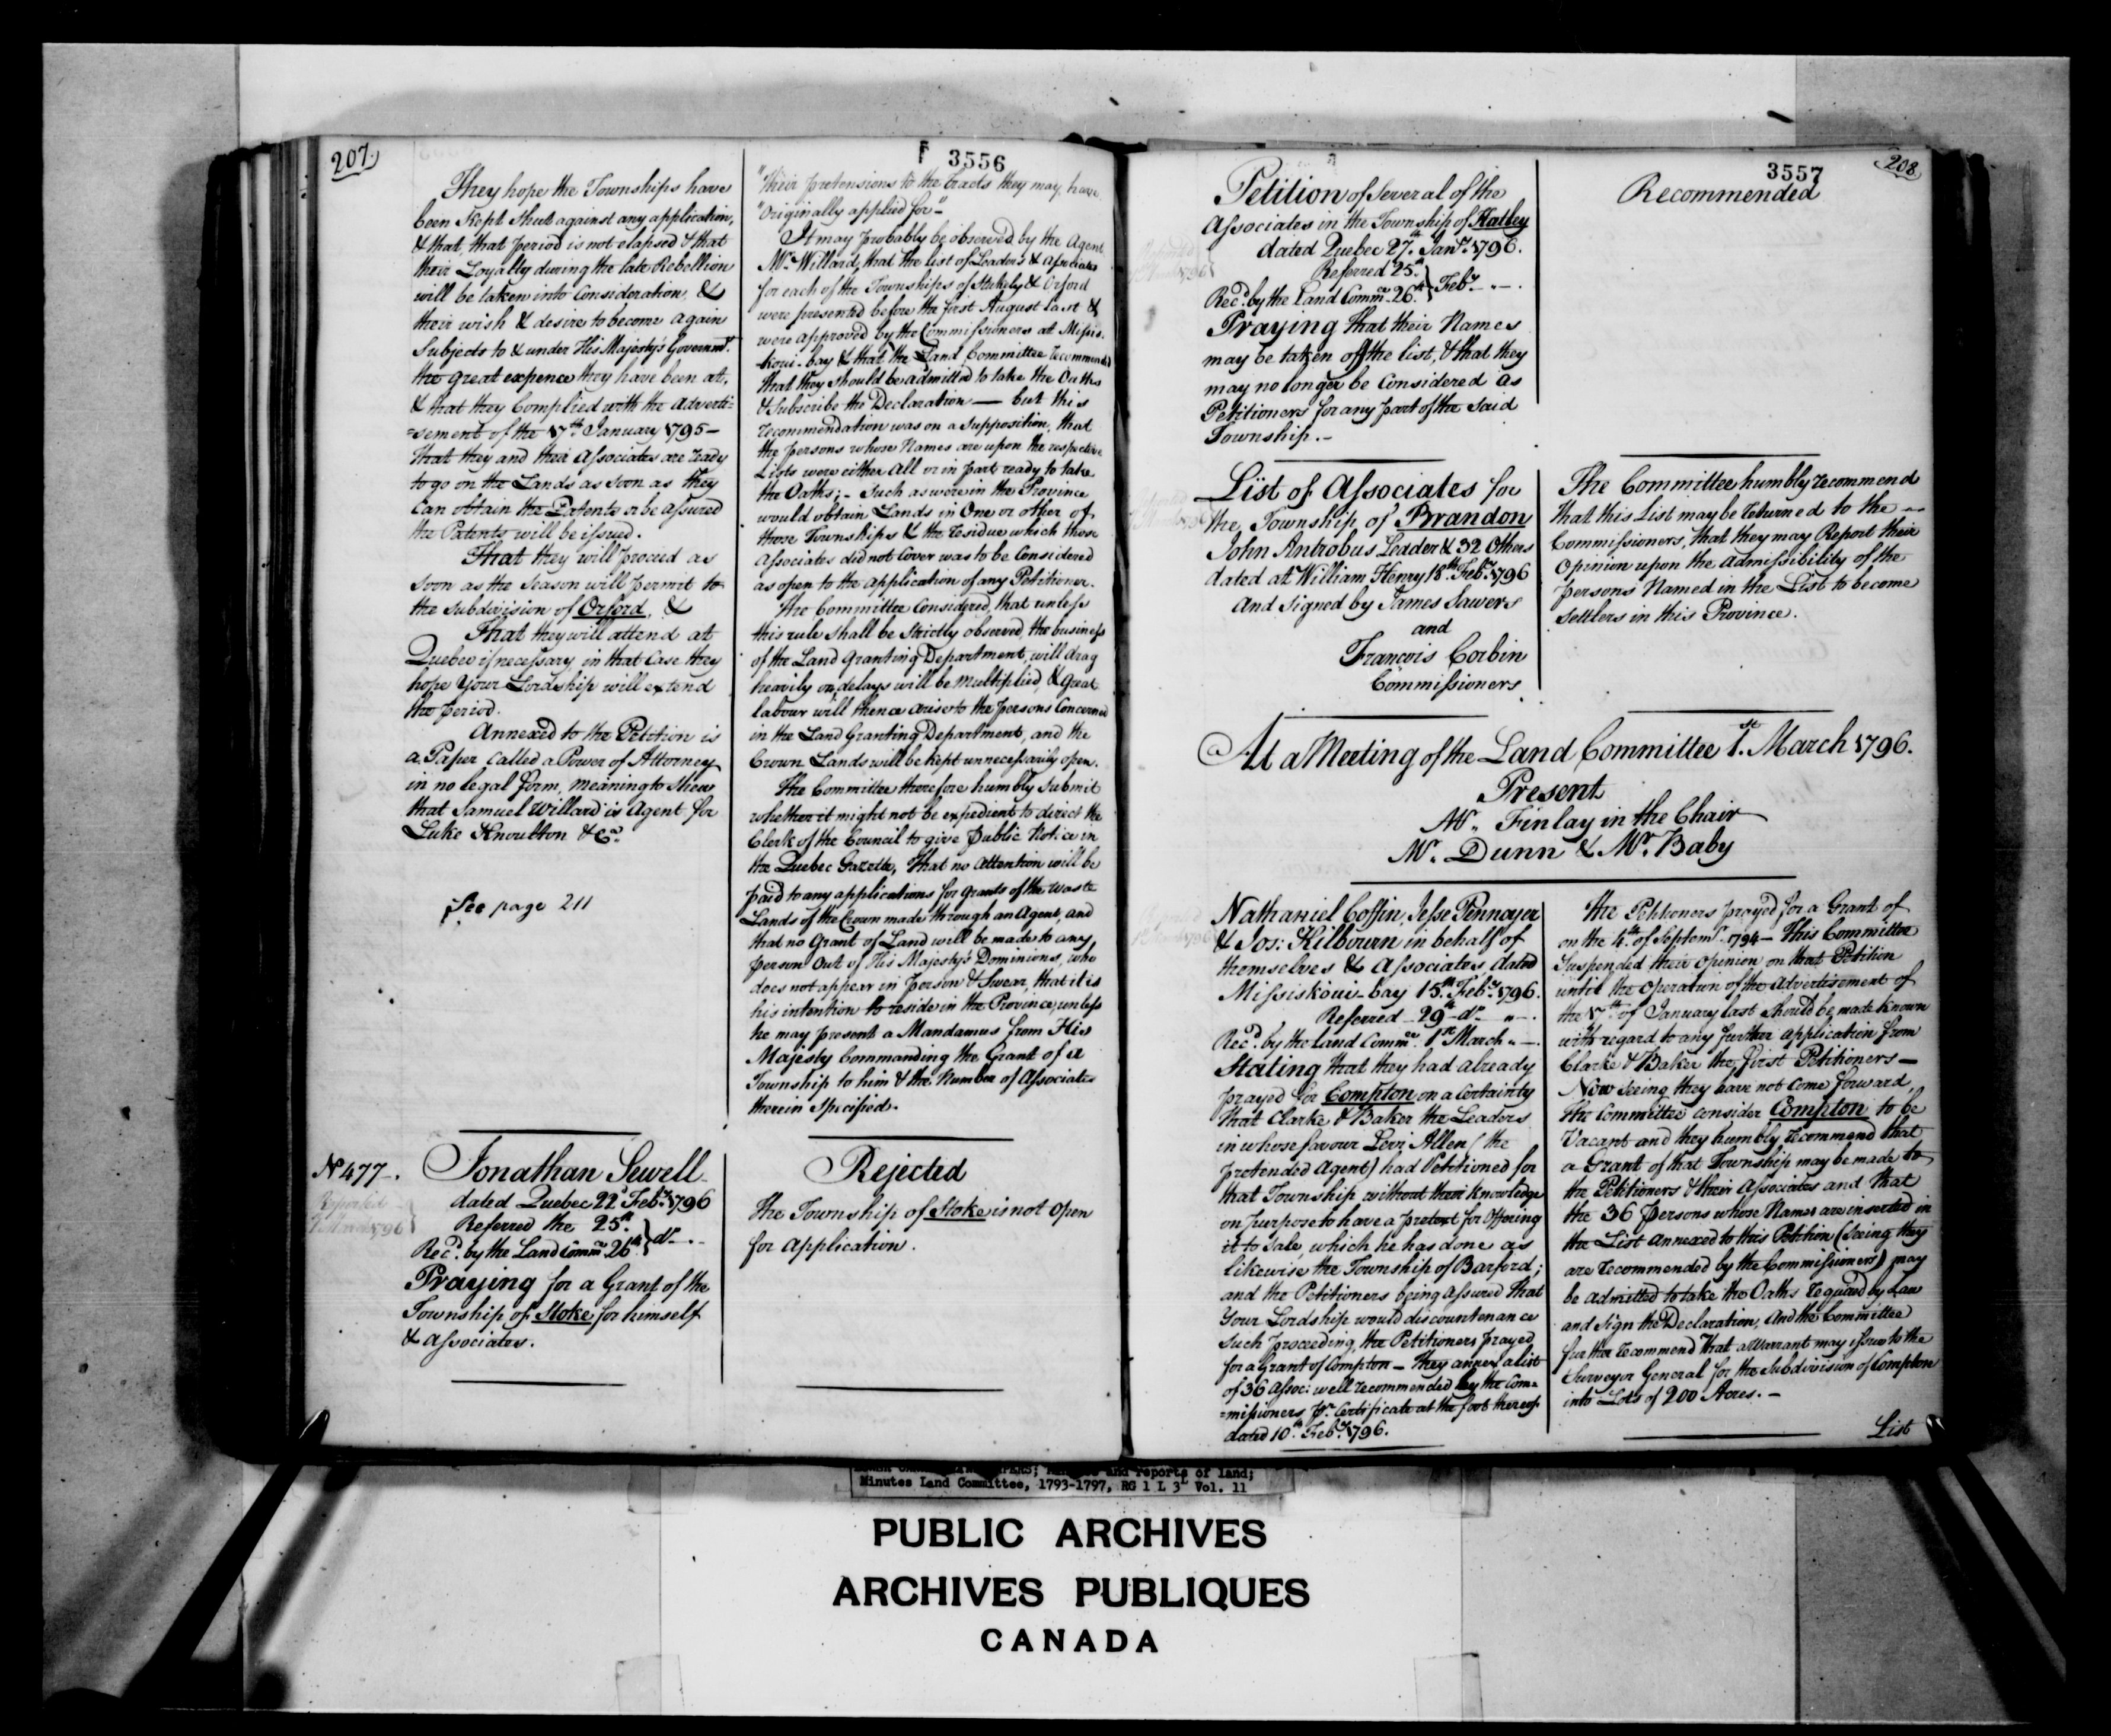 207.
3556
They hope the Townships have
been Kept Shut against any application,
& that, that period is not elapsed & that
their Loyalty during the late Rebellion
will be taken into Consideration, &
their wish & desire to become again
Subjects to & under His Majesty's Governmt.
the great expence they have been at,
& that they Complied with the Adverti=
=sement of the 17th January 1795 -
That they and their Associates are ready
to go on the Lands as soon as they
can obtain the Patents or be assured
the Patents will be issued.
That they will proceed as
soon as the season will permit to
the subdivision of Orford, &
That they will attend at
Quebec if necessary, in that Case they
hope Your Lordship will extend
the period.
Annexed to the Petition is
a Paper Called a Power of Attorney
in no legal form, meaning to Shew
that Samuel Willard is Agent for
Luke Knoulton & Co.
See page 211
"their pretensions to the tracts they may have
"Originally applied for"-
It may probably be observed by the Agent
Mr. Willard, that the list of Leaders & Associates
for each of the Townships of Stukely & Orford
were presented before the first August last &
were approved by the Commissioners at Missis-
koui-bay & that the Land Committee recommended
that they should be admitted to take the Oaths
& Subscribe the Declaration — but this
recommendation was on a Supposition, that
the persons whose Names are upon the respective
Lists were either all or in part ready to take
the Oaths; - Such as were in the Province
would obtain Lands in One or other of
those Townships & the residue which those
Associates did not Cover was to be Considered
as open to the application of any Petitioner.
The Committee Considered, that unless
this rule shall be Strictly observed, the business
of the Land Granting Department, will drag
heavily on, delays will be multiplied, & great
labour will thence arise to the persons Concerned
in the Land Granting Department, and the
Crown Lands will be kept unnecessarily open.
The Committee therefore humbly Submit
whether it might not be expedient to direct the
Clerk of the Council to give Public Notice in
the Quebec Gazette, That no attention will be
paid to any applications for grants of the Waste
Lands of the Crown made through an Agent, and
that no Grant of Land will be made to any
person Out of His Majesty's Dominions, who
does not appear in Person & Swear, that it is
his intention to reside in the Province, unless
he may present a Mandamus from His
Majesty Commanding the Grant of a
Township to him & the Number of Associates
therein Specified.
No 477.
Reported
Jonathan Sewell
dated Quebec 22d Feby. 1796
Referred the 25th
Recd. by the Land Commee 26th } do -
Praying for a Grant of the
Township of Stoke for himself
& Associates.
Rejected
The Township of Stoke is not open
for Application.
3557
208
Petition of Several of the
Associates in the Township of Hatley
dated Quebec 27th Jany. 1796.
Referred 25th
Recd. by the Land Commee 26th } Feby. - " - .
Praying that their Names
may be taken off the list, & that they
may no longer be Considered as
Petitioners for any part of the said
Township. -
Recommended
List of Associates for
the Township of Brandon
John Antrobus Leader & 32 Others
dated at William Henry 18th Feby. 1796
and signed by James Sawers
and
Francois Corbin
Commissioners
The Committee humbly recommend
That this List may be returned to the
Commissioners, that they may Report their
Opinion upon the admissibility of the
persons Named in the List to become
settlers in this Province.
At a Meeting of the Land Committee 1st. March 1796.
Present
Mr. Finlay in the Chair
Mr. Dunn & Mr. Baby
Nathaniel Coffin, Jesse Pennoyer
& Jos: Kilbourn in behalf of
themselves & Associates, dated
Missiskoui-bay 15th. Feby. 1796.
Referred - 29th do - " - .
Recd. by the land Commee. 1st March " - .
Stating that they had already
prayed for Compton on a Certainty
that Clarke & Baker the Leaders
in whose favour Levi Allen (the
pretended Agent) had Petitioned for
that Township without their knowledge
on purpose to have a pretext for Offering
it to Sale, which he has done as
likewise the Township of Barford;
and the Petitioners being assured that
Your Lordship would discountenance
such proceeding, the Petitioners prayed
for a Grant of Compton - They annex a list
of 36 Assoc: well recommended by the Com=
=missioners pr. Certificate at the foot thereof
dated 10th. Feby. 1796.
The Petitioners prayed for a Grant of
on the 4th. of Septemr. 1794 - This Committee
Suspended their opinion on that Petition
until the Operation of the Advertisement of
the 17th of January last should be made known
with regard to any further application from
Clarke & Baker the first Petitioners -
Now seeing they have not Come forward,
the Committee consider Compton to be
Vacant and they humbly recommend that
a Grant of that Township may be made to
the Petitioners & their Associates and that
the 36 Persons whose Names are inserted in
the List annexed to this Petition (Seeing they
are recommended by the Commissioners) may
be admitted to take the Oaths required by Law
and sign the Declaration, And the Committee
further recommend That a Warrant may issue to the
Surveyor General for the Subdivision of Compton
into Lots of 200 Acres. -
List
and reports of land;
Minutes Land Committee, 1793-1797, RG 1 L 3L Vol. 11
PUBLIC ARCHIVES
ARCHIVES PUBLIQUES
CANADA